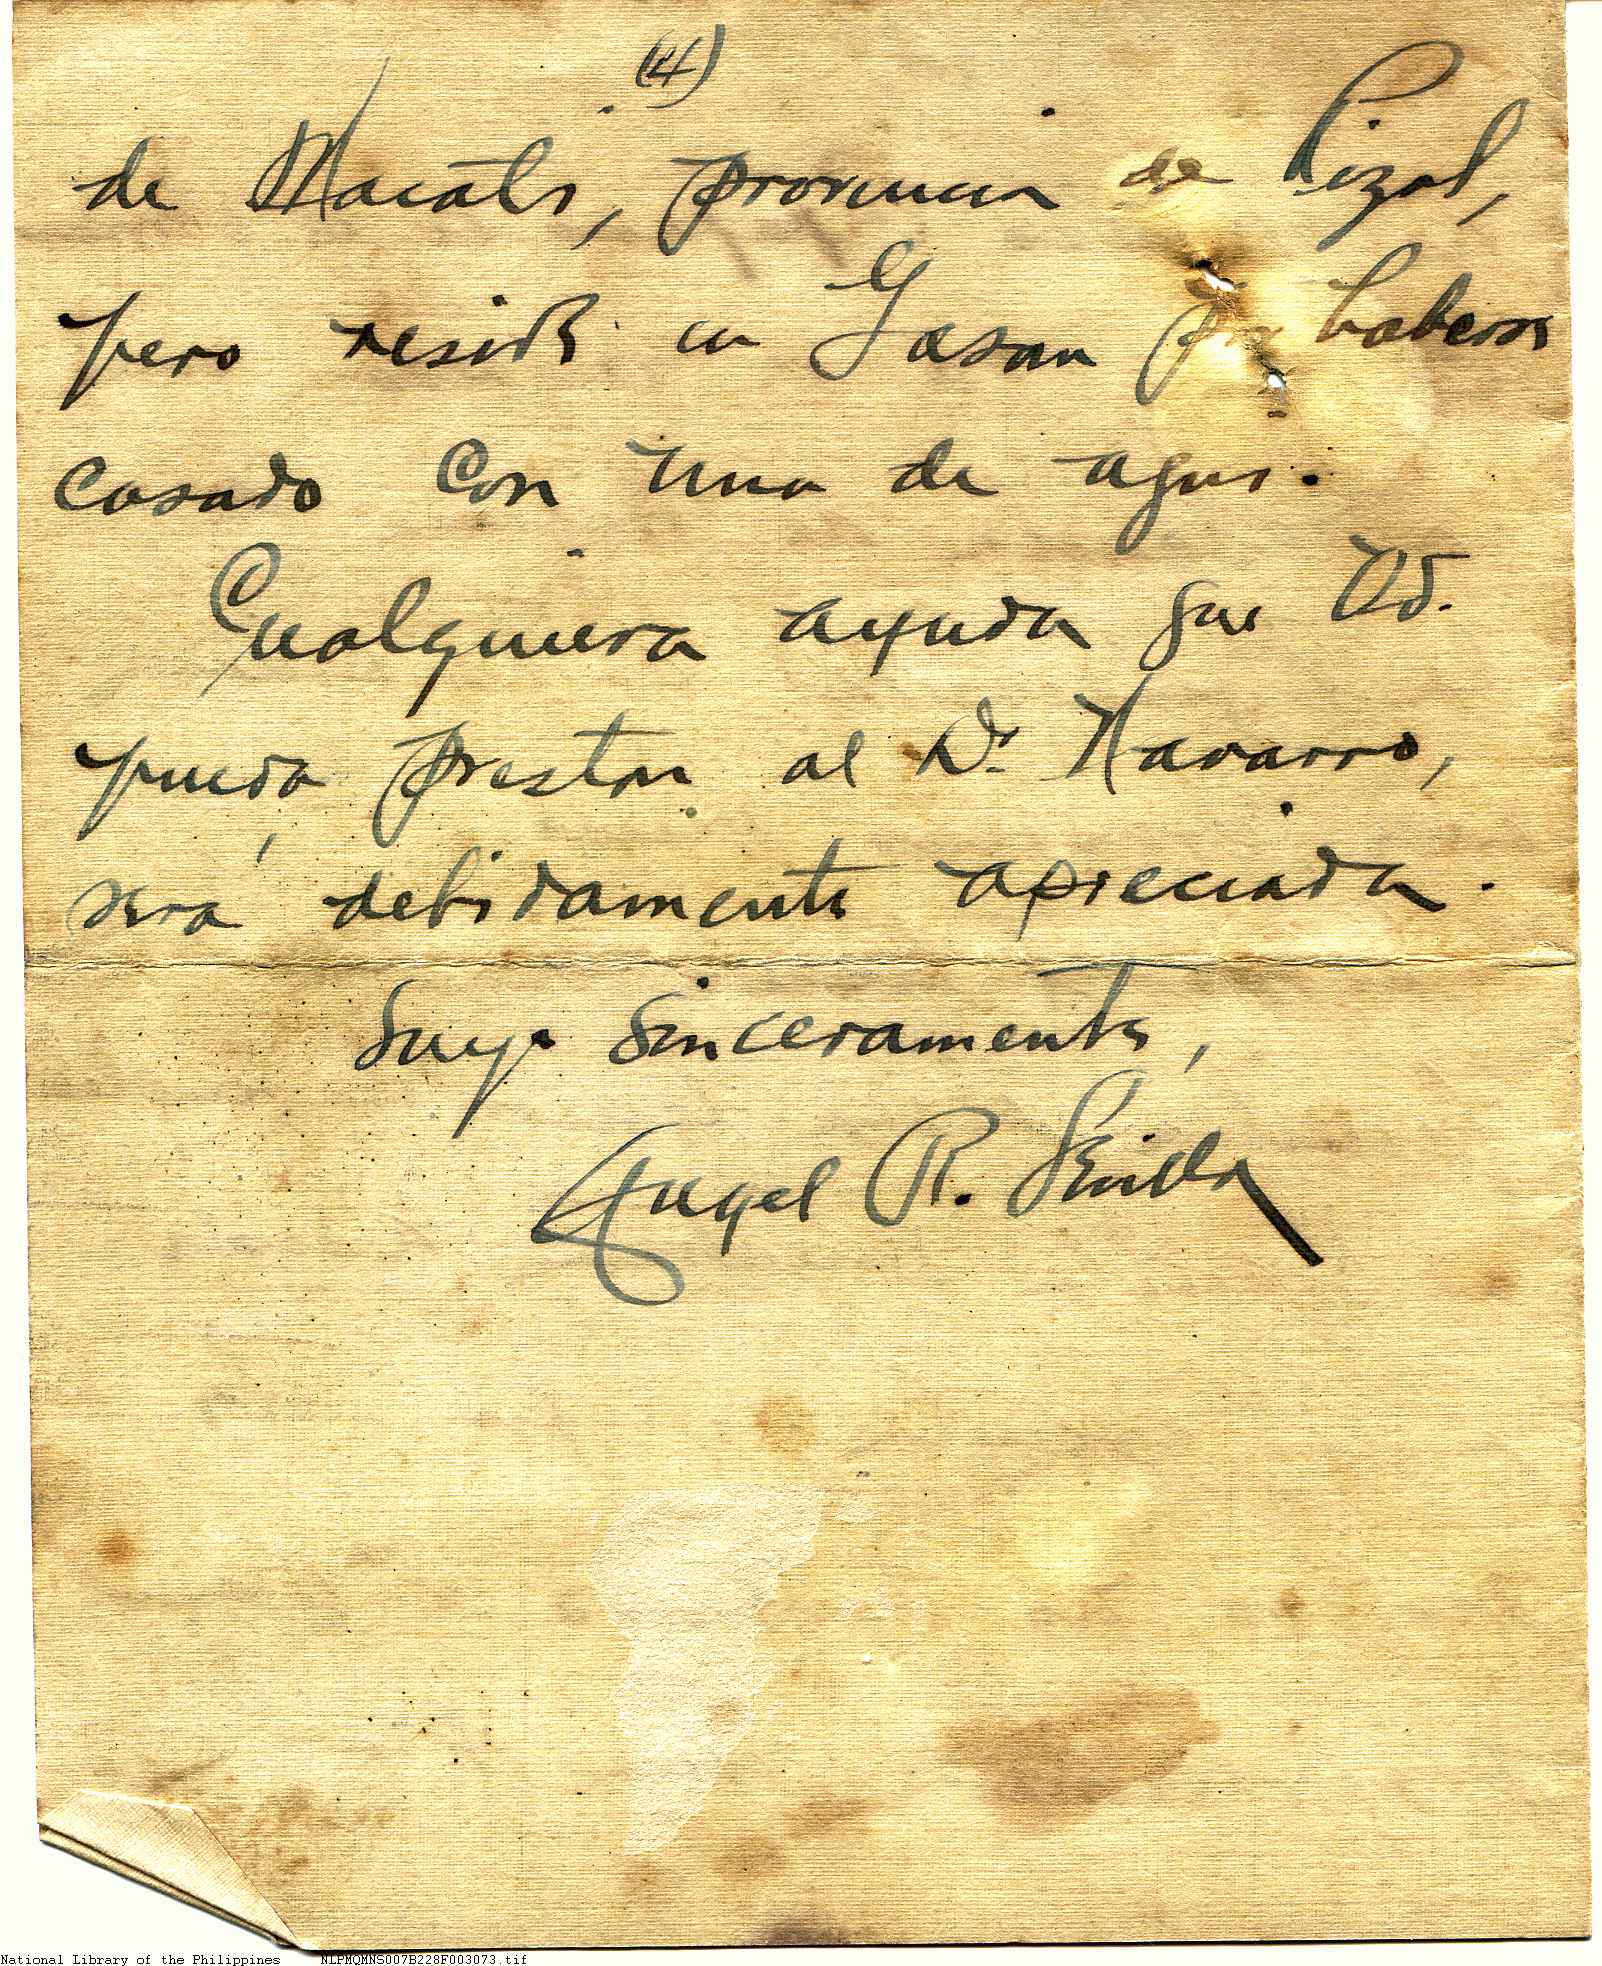 (4)
de Macati, provincia de Rizal,
pero reside en Gasan por haberse
casado con una de aqui.
Cualquiera ayuda que Ud.
pueda prestar al Dr. Navarro,
será debidamente apreciada.
Suyo sinceramente,
Angel R. Sevilla
National Library of the Philippines NLPMQMNS007B228F003073.tif